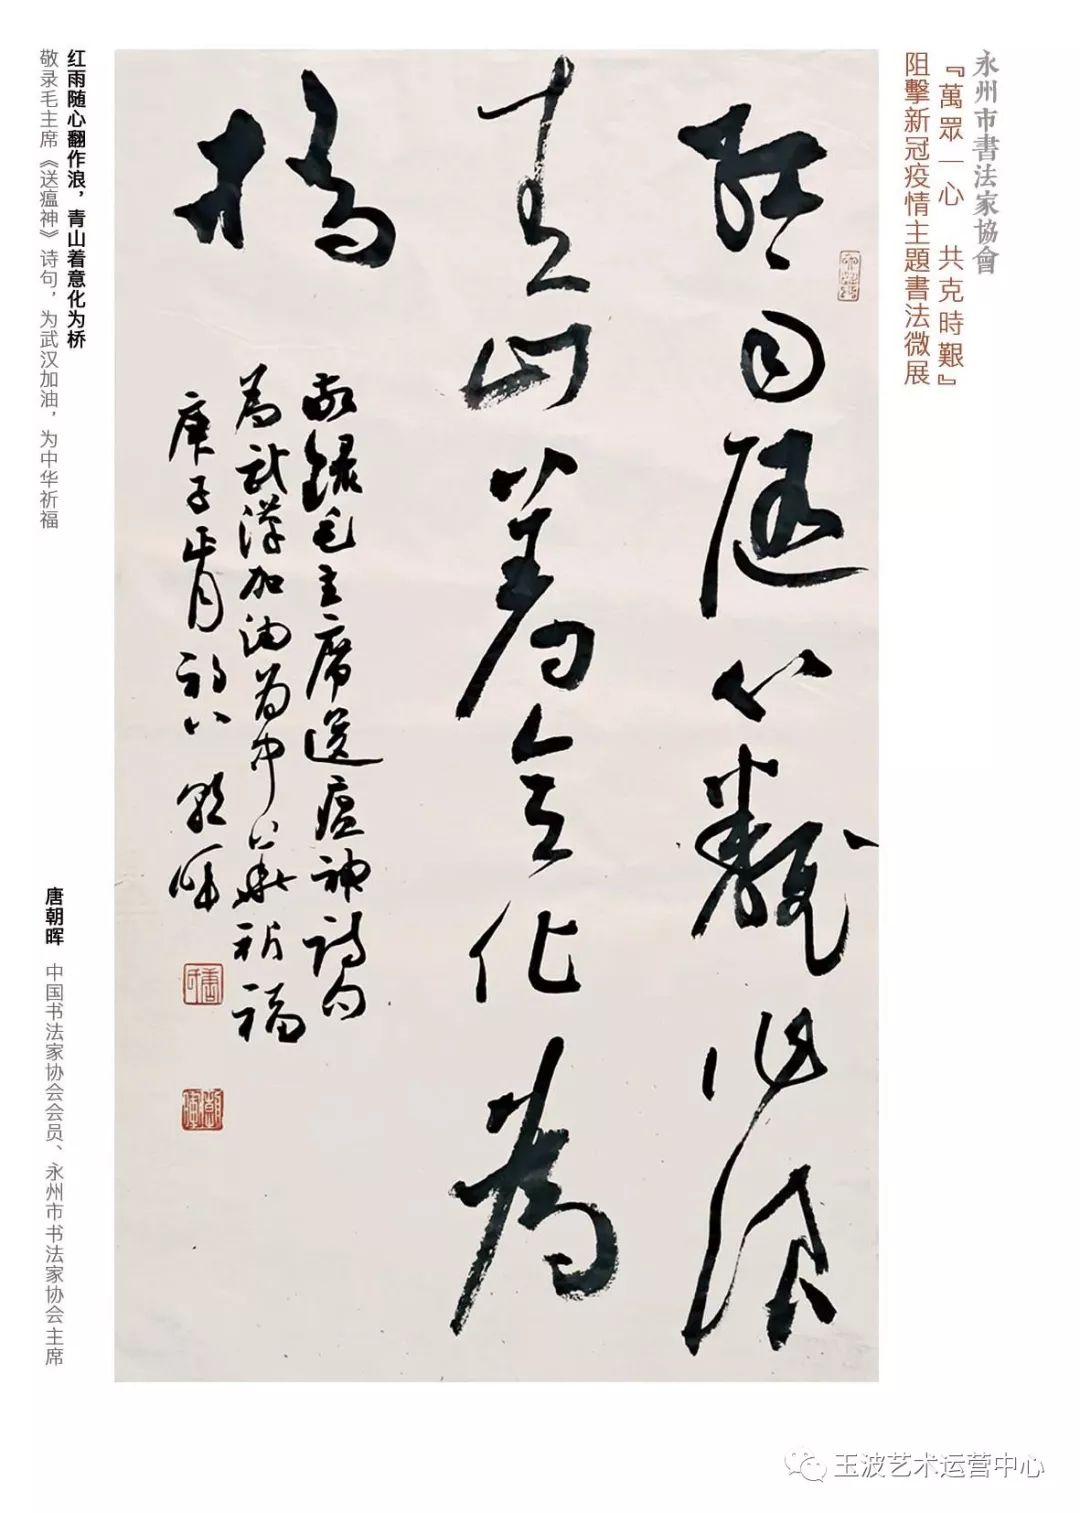 永州市書法家協會
『萬眾一心 共克時艱』
阻擊新冠疫情主題書法微展
红雨随心翻作浪
青山着意化为
桥
敬录毛主席送瘟神诗句
为武汉加油为中华祈福
庚子正月初八 朝晖
唐氏
朝暉
红雨随心翻作浪，青山着意化为桥
敬录毛主席《送瘟神》诗句，为武汉加油，为中华祈福
唐朝晖 中国书法家协会会员、永州市书法家协会主席
玉波艺术运营中心